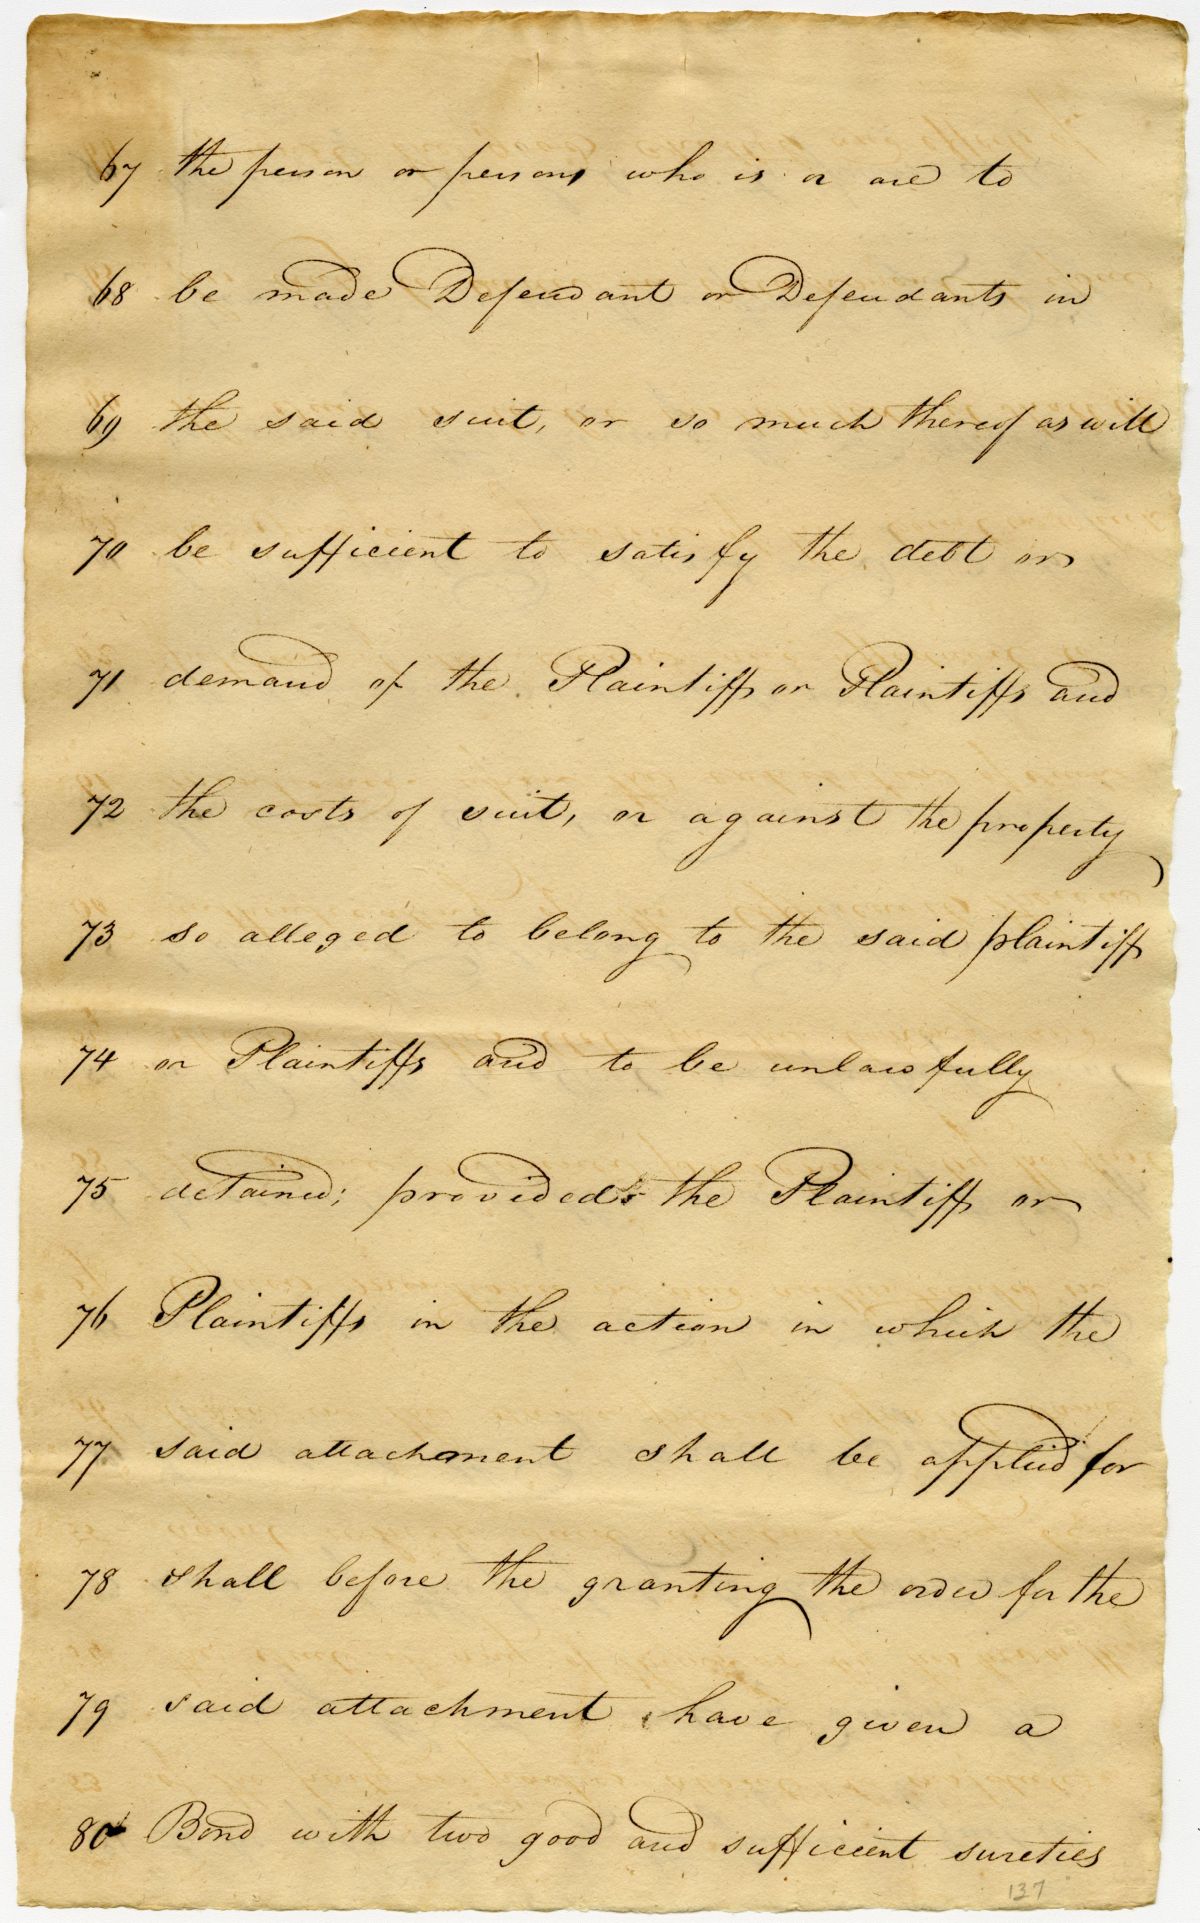 67 the person or persons who is or are to
68 be made Defendant or Defendants in
69 the said suit, or so much thereof as will
70 be sufficient to satisfy the debt or
71 demand of the Plaintiff or Plaintiffs and
72 the costs of suit, or against the property
73 so alleged to belong to the said plaintiff
74 or Plaintiffs and to be unlawfully
75 detained; provided the Plaintiff or
76 Plaintiffs in the action in which the
77 said attachment shall be applied for
78 shall before the granting the order for the
79 said attachment have given a
80 Bond with two good and sufficient sureties
137